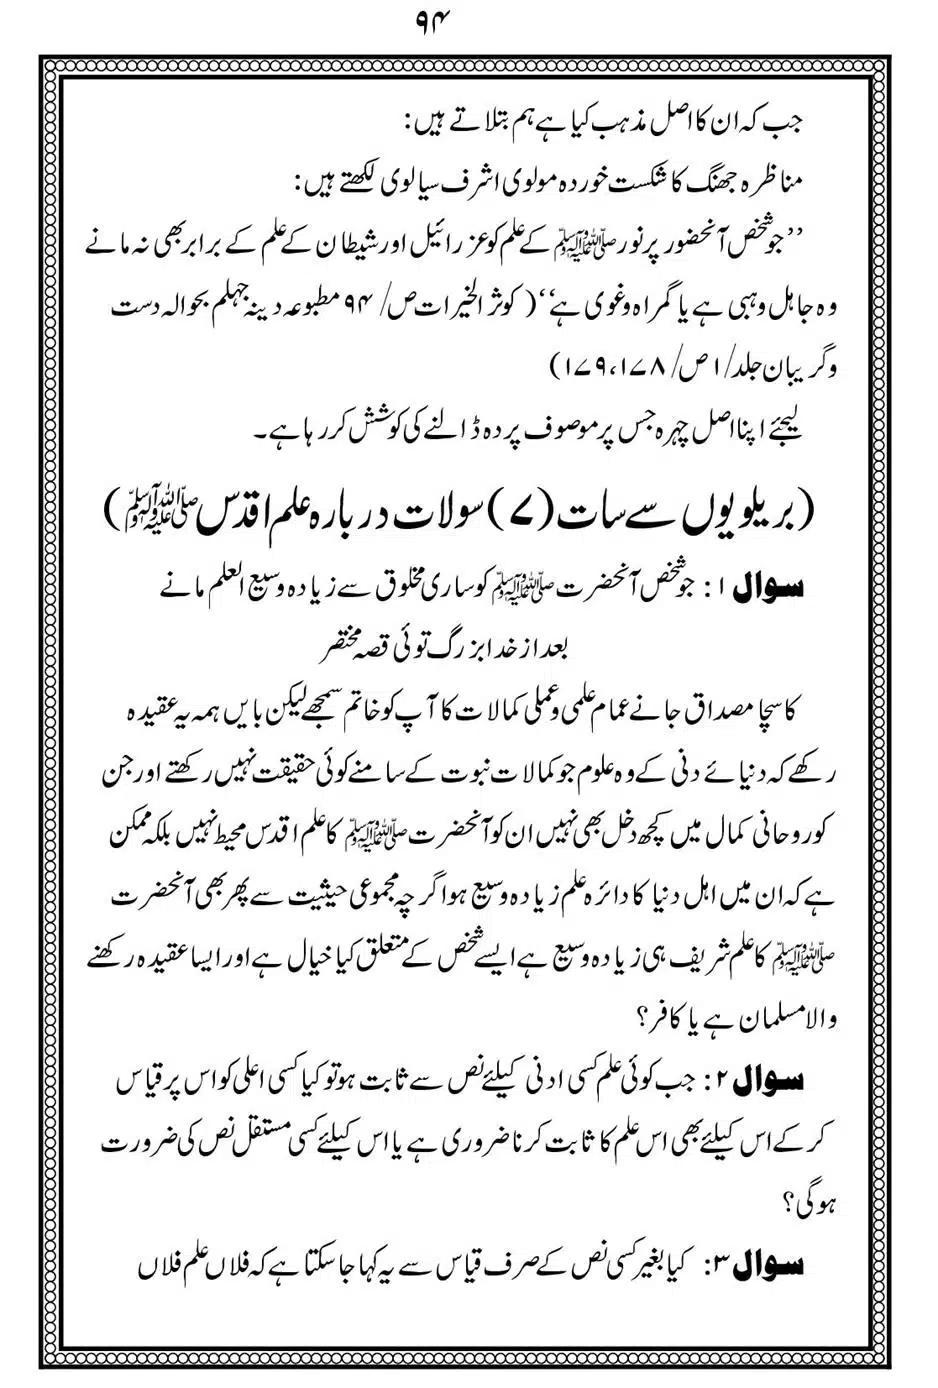 ۹۴
جب کہ ان کا اصل مذہب کیا ہے ہم بتلاتے ہیں:
مناظرہ جھنگ کا شکست خوردہ مولوی اشرف سیالوی لکھتے ہیں:
’’جو شخص آنحضور پر نور ﷺ کے علم کو عزرائیل اور شیطان کے علم کے برابر بھی نہ مانے
وہ جاہل وہبی ہے یا گمراہ وغوی ہے‘‘ (کوثر الخیرات ص/۹۴ مطبوعہ دینہ جہلم بحوالہ دست
وگریبان جلد/۱ ص/۱۷۹،۱۷۸)
لیجئے اپنا اصل چہرہ جس پر موصوف پردہ ڈالنے کی کوشش کررہا ہے۔
(بریلویوں سے سات (۷) سولات دربارہ علم اقدس ﷺ)
سوال ۱: جو شخص آنحضرت ﷺ کو ساری مخلوق سے زیادہ وسیع العلم مانے
بعد از خدا بزرگ توئی قصہ مختصر
کا سچا مصداق جانے عمام علمی و عملی کمالات کا آپ کو خاتم سمجھے لیکن بایں ہمہ یہ عقیدہ
رکھے کہ دنیائے دنی کے وہ علوم جو کمالات نبوت کے سامنے کوئی حقیقت نہیں رکھتے اور جن
کو روحانی کمال میں کچھ دخل بھی نہیں ان کو آنحضرت ﷺ کا علم اقدس محیط نہیں بلکہ ممکن
ہے کہ ان میں اہل دنیا کا دائرہ علم زیادہ وسیع ہو اگر چہ مجموعی حیثیت سے پھر بھی آنحضرت
ﷺ کا علم شریف ہی زیادہ وسیع ہے ایسے شخص کے متعلق کیا خیال ہے اور ایسا عقیدہ رکھنے
والا مسلمان ہے یا کافر؟
سوال ۲: جب کوئی علم کسی ادنی کیلئے نص سے ثابت ہو تو کیا کسی اعلی کو اس پر قیاس
کر کے اس کیلئے بھی اس علم کا ثابت کرنا ضروری ہے یا اس کیلئے کسی مستقل نص کی ضرورت
ہوگی؟
سوال ۳: کیا بغیر کسی نص کے صرف قیاس سے یہ کہا جا سکتا ہے کہ فلاں علم فلاں